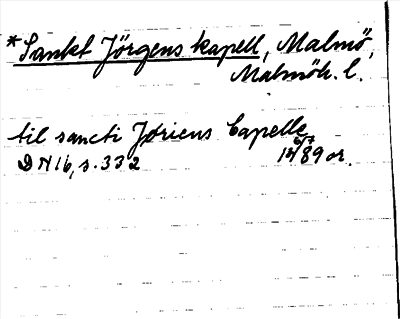 *Sankt Jörgens kapell, Malmö,
Malmöh. l.
til sancti Jøriens Capelle
DN 16, s. 332 1489 or.